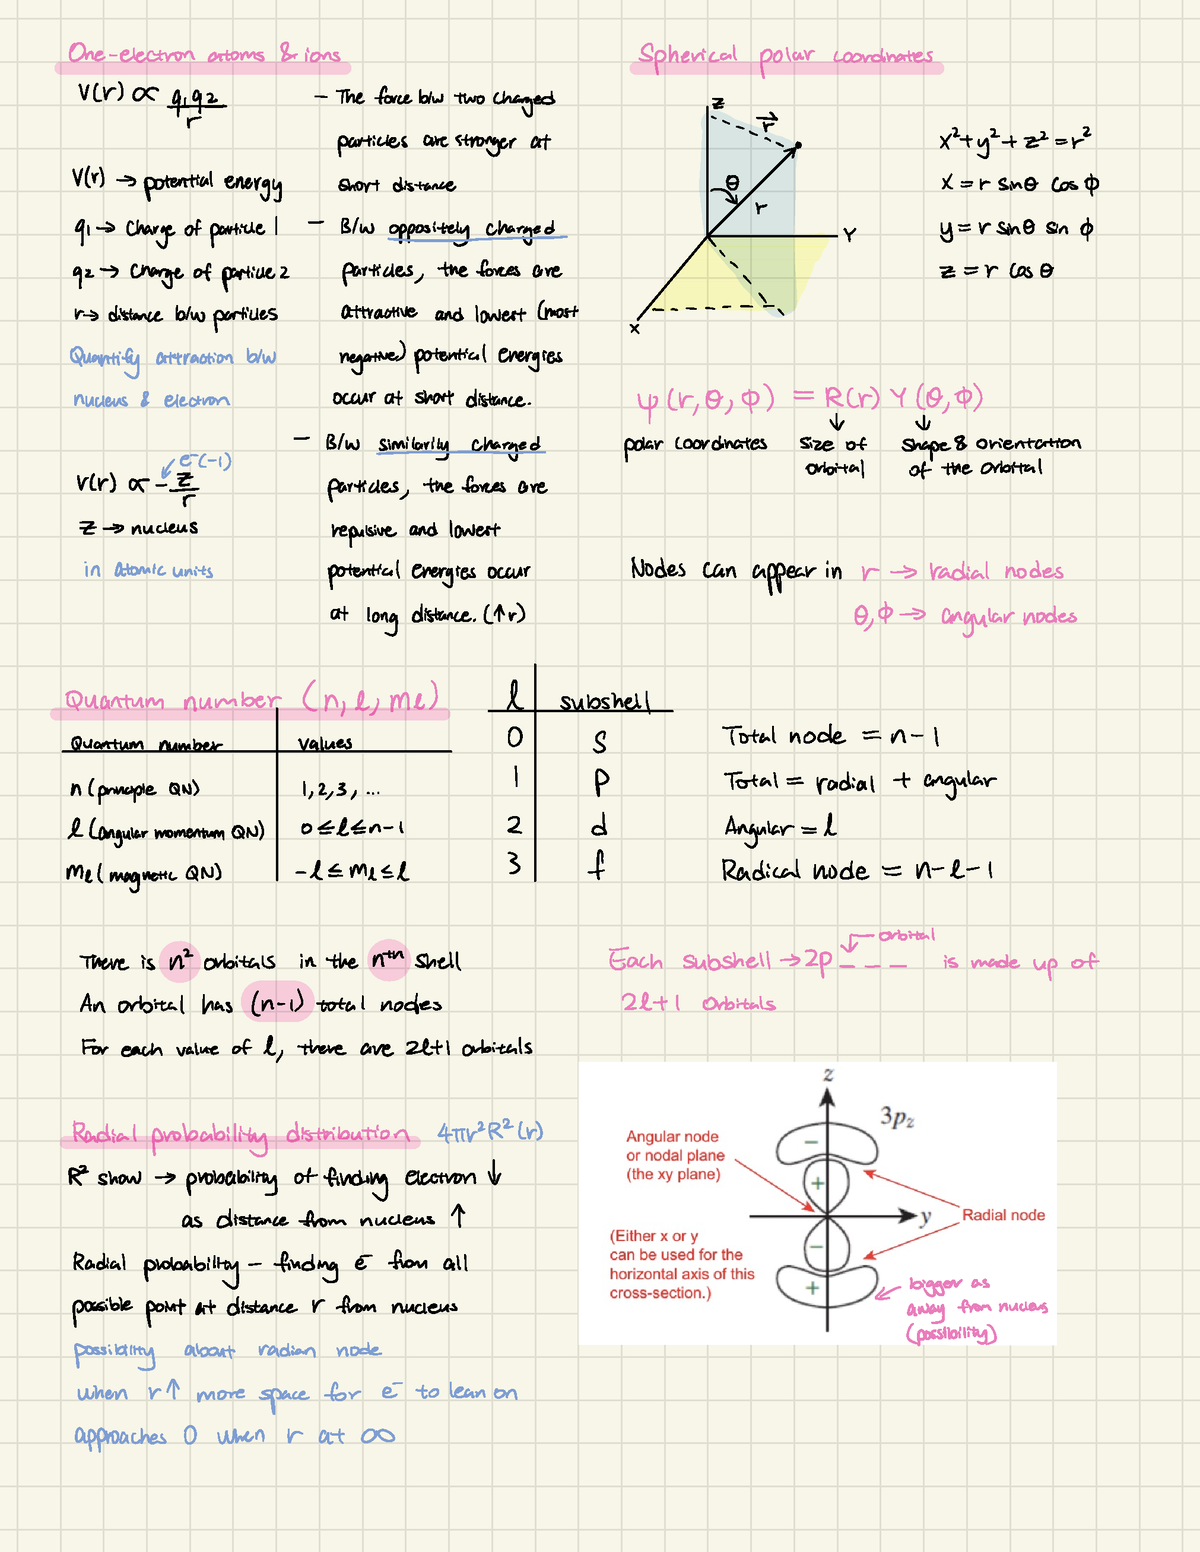 One-electron atoms & ions
V(r) ∝ q1q2/r
V(r) → potential energy
q1 → Charge of particle 1
q2 → Charge of particle 2
r → distance b/w particles
Quantify attraction b/w
nucleus & electron
e-(-1)
V(r) ∝ -Z/r
Z → nucleus
in atomic units
- The force b/w two charged
particles are stronger at
short distance
- B/w oppositely charged
particles, the forces are
attractive and lowest (most
negative) potential energies
occur at short distance.
- B/w similarily charged
particles, the forces are
repulsive and lowest
potential energies occur
at long distance. (↑r)
Spherical polar coordinates
Z
r⃗
θ
r
Y
X
x²+y²+z²=r²
X = r sinθ cos φ
y = r sinθ sin φ
z = r cos θ
ψ(r,θ,φ) = R(r) Y(θ,φ)
polar coordinates
size of
orbital
shape & orientation
of the orbital
Nodes can appear in r → radial nodes
θ,φ → angular nodes
Quantum number (n, l, ml)
Quantum number values
n (principle QN) 1,2,3, ...
l (angular momentum QN) 0≤l≤n-1
ml (magnetic QN) -l≤ml≤l
l subshell
0 s
1 p
2 d
3 f
Total node = n-1
Total = radial + angular
Angular = l
Radical node = n-l-1
There is n² orbitals in the nth shell
An orbital has (n-1) total nodes
For each value of l, there are 2l+1 orbitals
orbital
Each subshell → 2p _ _ _ is made up of
2l+1 orbitals
Radial probability distribution 4πr²R²(r)
R² show → probability of finding electron ↓
as distance from nucleus ↑
Radial probability - finding e- from all
possible point at distance r from nucleus
possibility about radian node
when r↑ more space for e- to lean on
approaches 0 when r at ∞
z
3pz
Angular node
or nodal plane
(the xy plane)
-
+
y
Radial node
-
+
(Either x or y
can be used for the
horizontal axis of this
cross-section.)
bigger as
away from nucleus
(possibility)